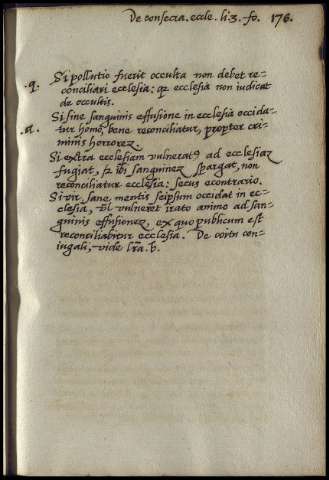 De consecra. eccle. li. 3. fo. 176.
.q. Si pollutio fuerit occulta non debet re-
conciliari ecclesia: qz ecclesia non iudicat
de occultis.
Si sine sanguinis effusione in ecclesia occida-
.a. tur homo, bene reconciliatur, propter cri-
minis horrorez.
Si extra ecclesiam vulneratꝰ ad ecclesiaz
fugiat, sz ibi sanguinez spargat, non
reconciliatur ecclesia: secus econtrario.
Si vir sane mentis seipsum occidat in ec-
clesia, vel vulneret irato animo ad san-
guinis effusionez, ex quo publicum est
reconciliabitur ecclesia. De coitu con-
iugali, vide lr̃a. b.